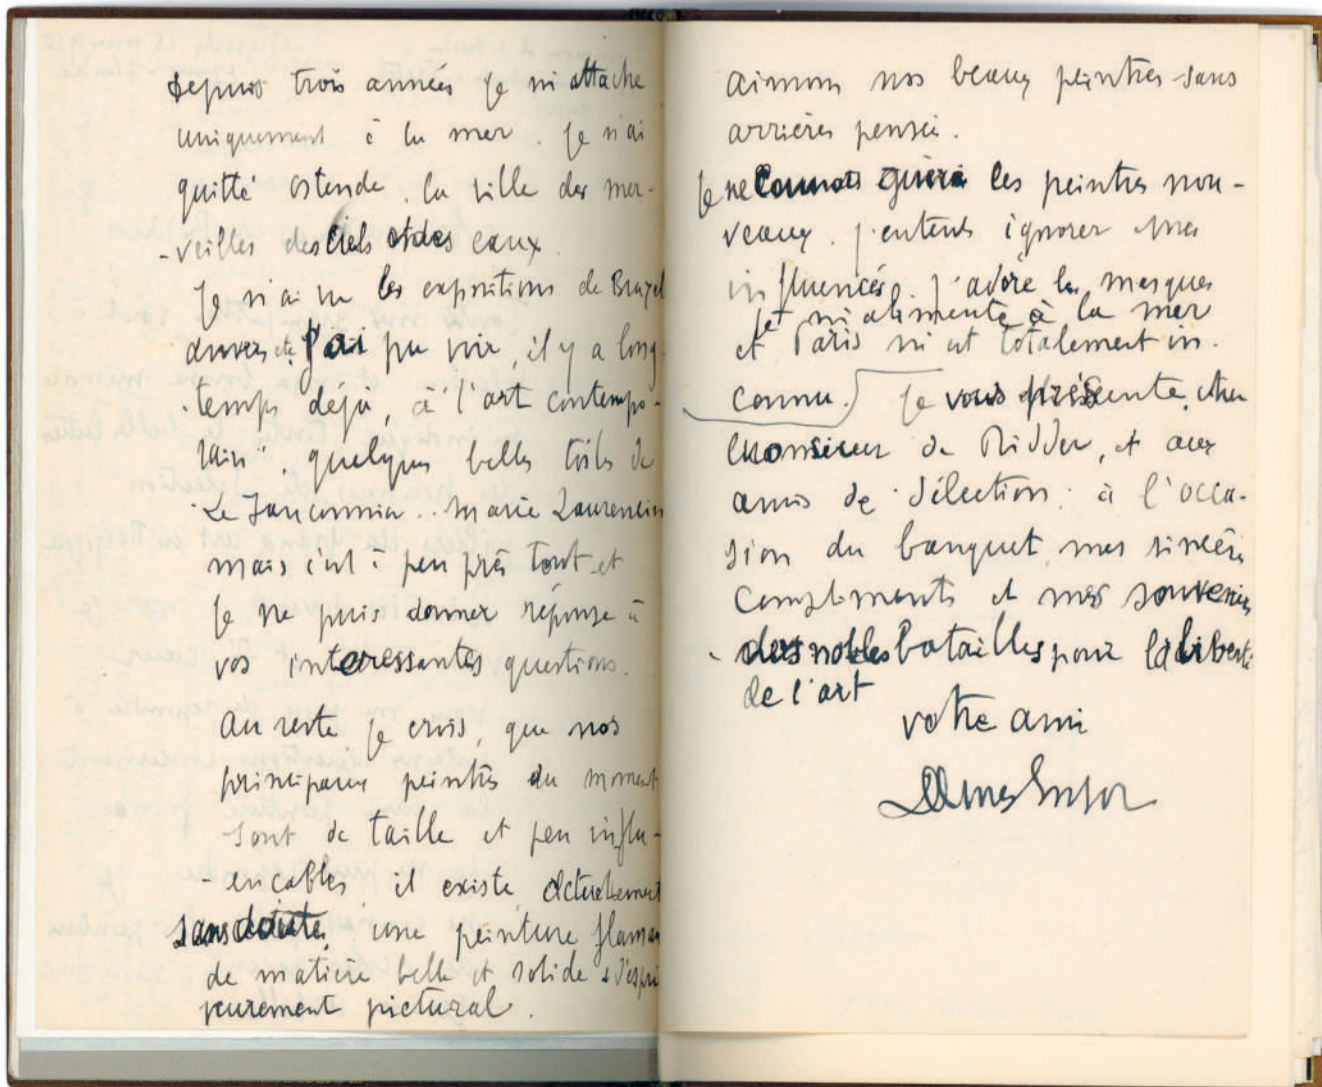 depuis trois années je m'attache
uniquement à la mer. je n'ai
quitté ostende. la ville des mer-
-veilles des Ciels et des eaux.
je n'ai vu les expositions de Bruxel
anvers etc. J'ai pu voir, il y a long-
temps déjà, à "l'art contempo-
rain", quelques belles toiles de
Le Fauconnier.. Marie Laurencin
mais c'est à peu près tout et
je ne puis donner réponse à
vos interessantes questions.
au reste je crois, que nos
principaux peintres du moment
sont de taille et peu influ-
-encables il existe actuellement
sans doute, une peinture flaman
de matière belle et solide & d'esprit
purement pictural.
aimons nos beaux peintres sans
arrières pensée.
je ne Connais guère les peintres nou-
veaux. j'entends ignorer
influences. J'adore les masques
je m'alimente à la mer
et Paris m'est totalement in-
connu. je vous présente, cher
Monsieur de Ridder, et aux
amis de Sélection. à l'occa-
sion du banquet, mes sincères
Compliments et mes souvenirs
des nobles batailles pour la liberté
de l'art
votre ami
James Ensor